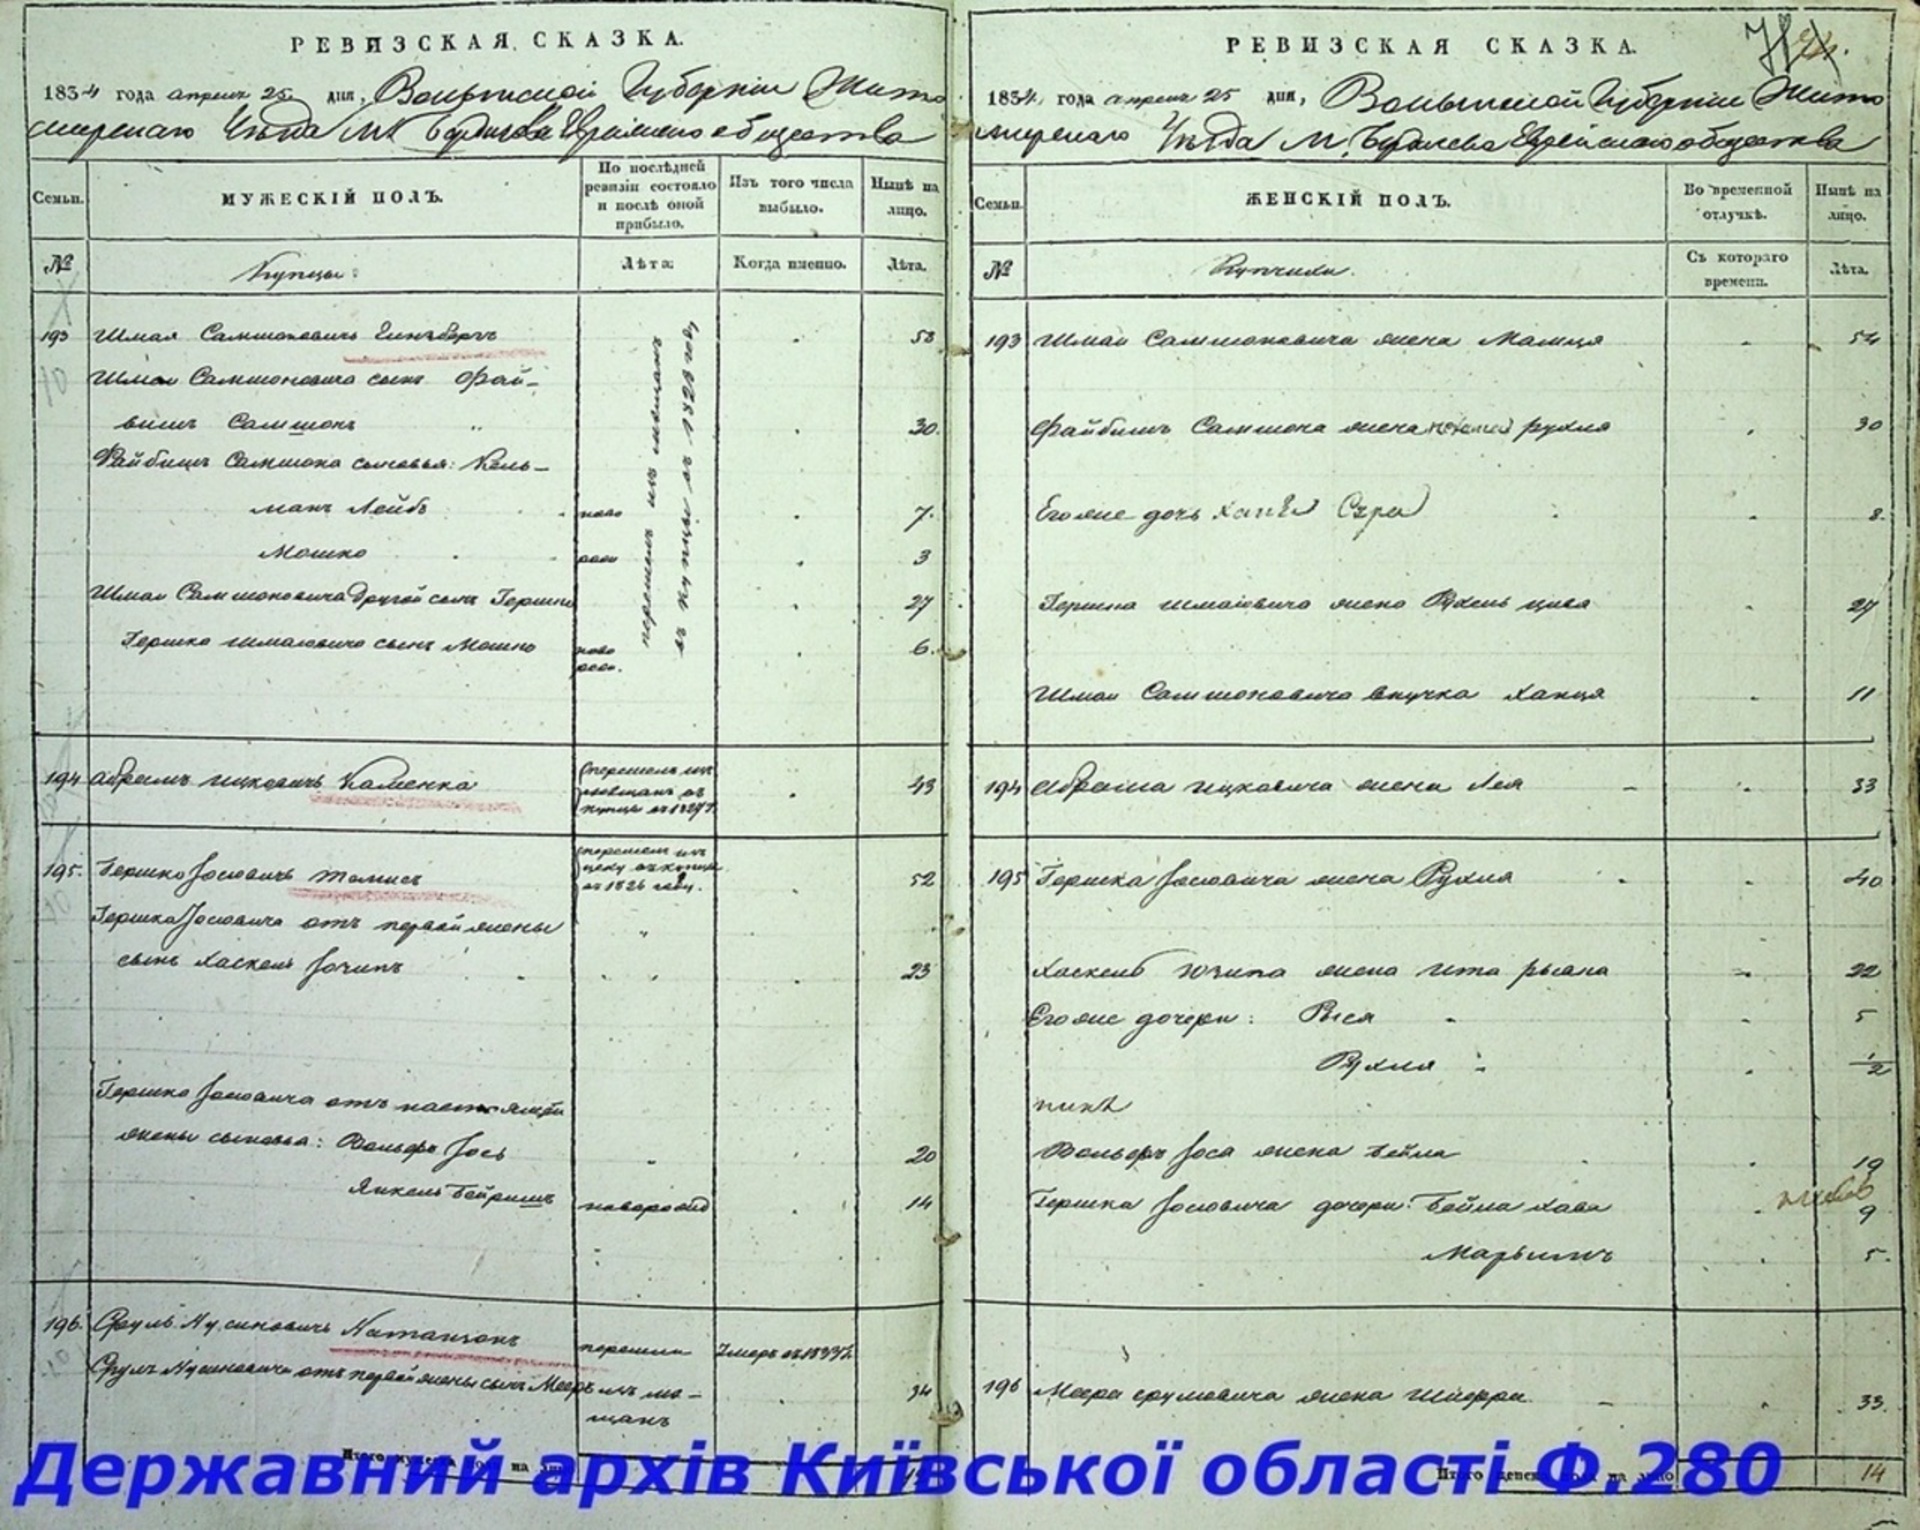 РЕВИЗСКАЯ СКАЗКА.
1834 года апреля 25 дня, Волынской Губернии Жито
мирскаго Уѣзда М. Бердичева Еврейскаго общества
Семьи.
МУЖЕСКІЙ ПОЛЪ.
По послѣдней ревизіи состояло и послѣ оной прибыло.
Изъ того числа выбыло.
Нынѣ на лицо.
№
Купцы
Лѣта:
Когда именно.
Лѣта.
перешелъ изъ мещанъ
въ купцы въ 1828 году
193 Шмая Самшоновичъ Гинзбергъ 53
Шмаи Самшоновича сынъ Фай-
вишъ Самшонъ 30.
Файбишъ Самшона сыновья: Кель-
манъ Лейбъ ново 7.
Мошко 3
Шмаи Самшоновича другой сынъ Гершко 27
Гершка Шмаіовича сынъ Мошко ново 6.
194 Абрамъ Ицковичъ Каменка 43
перешелъ изъ
мещанъ въ
купцы въ 1827 г.
195. Гершко Іосіовичъ 52
перешелъ изъ
въ 1826 году.
Гершка Іосіовича отъ первой жены
сынъ Хаскель 23
Гершка Іосіовича отъ настоящей
жены сыновья: Вольфъ Іось 20
Янкель Бейришъ новорожд 14
196. Сруль Нусиновичъ Натанзонъ перешли Умеръ въ 1833 г.
Сруля Нусиновича отъ первой жены сынъ Мееръ изъ ме- 34
щанъ
Итого мужеска пола на лицо
РЕВИЗСКАЯ СКАЗКА.
1834 года апреля 25 дня, Волынской Губернии Жито
мирскаго Уѣзда М. Бердичева Еврейскаго общества
Семьи.
ЖЕНСКІЙ ПОЛЪ.
Во временной отлучкѣ.
Нынѣ на лицо.
№
Купчихи.
Съ котораго времени.
Лѣта.
193 Шмаи Самшоновича жена Малця 54
Файбишъ Самшона жена Рухля 30
Его же дочь Сура 8.
Гершка Шмаіовича жена Рухель Цива 27
Шмаи Самшоновича внучка Ханця 11
194 Абрама Ицковича жена Лея 33
195 Гершка Іосіовича жена Рухля 40
Хаскель жена Ита 22
Его же дочери: Рыся 5
Рухля 1/2
Вольфъ Іоса жена Бейла 19
Гершка Іосіовича дочери: Бейла Хава 9
Марьямъ 5.
196 Меера Срулевича жена Шифра 33.
Итого женска пола на лицо 14
Державний архів Київської області Ф.280